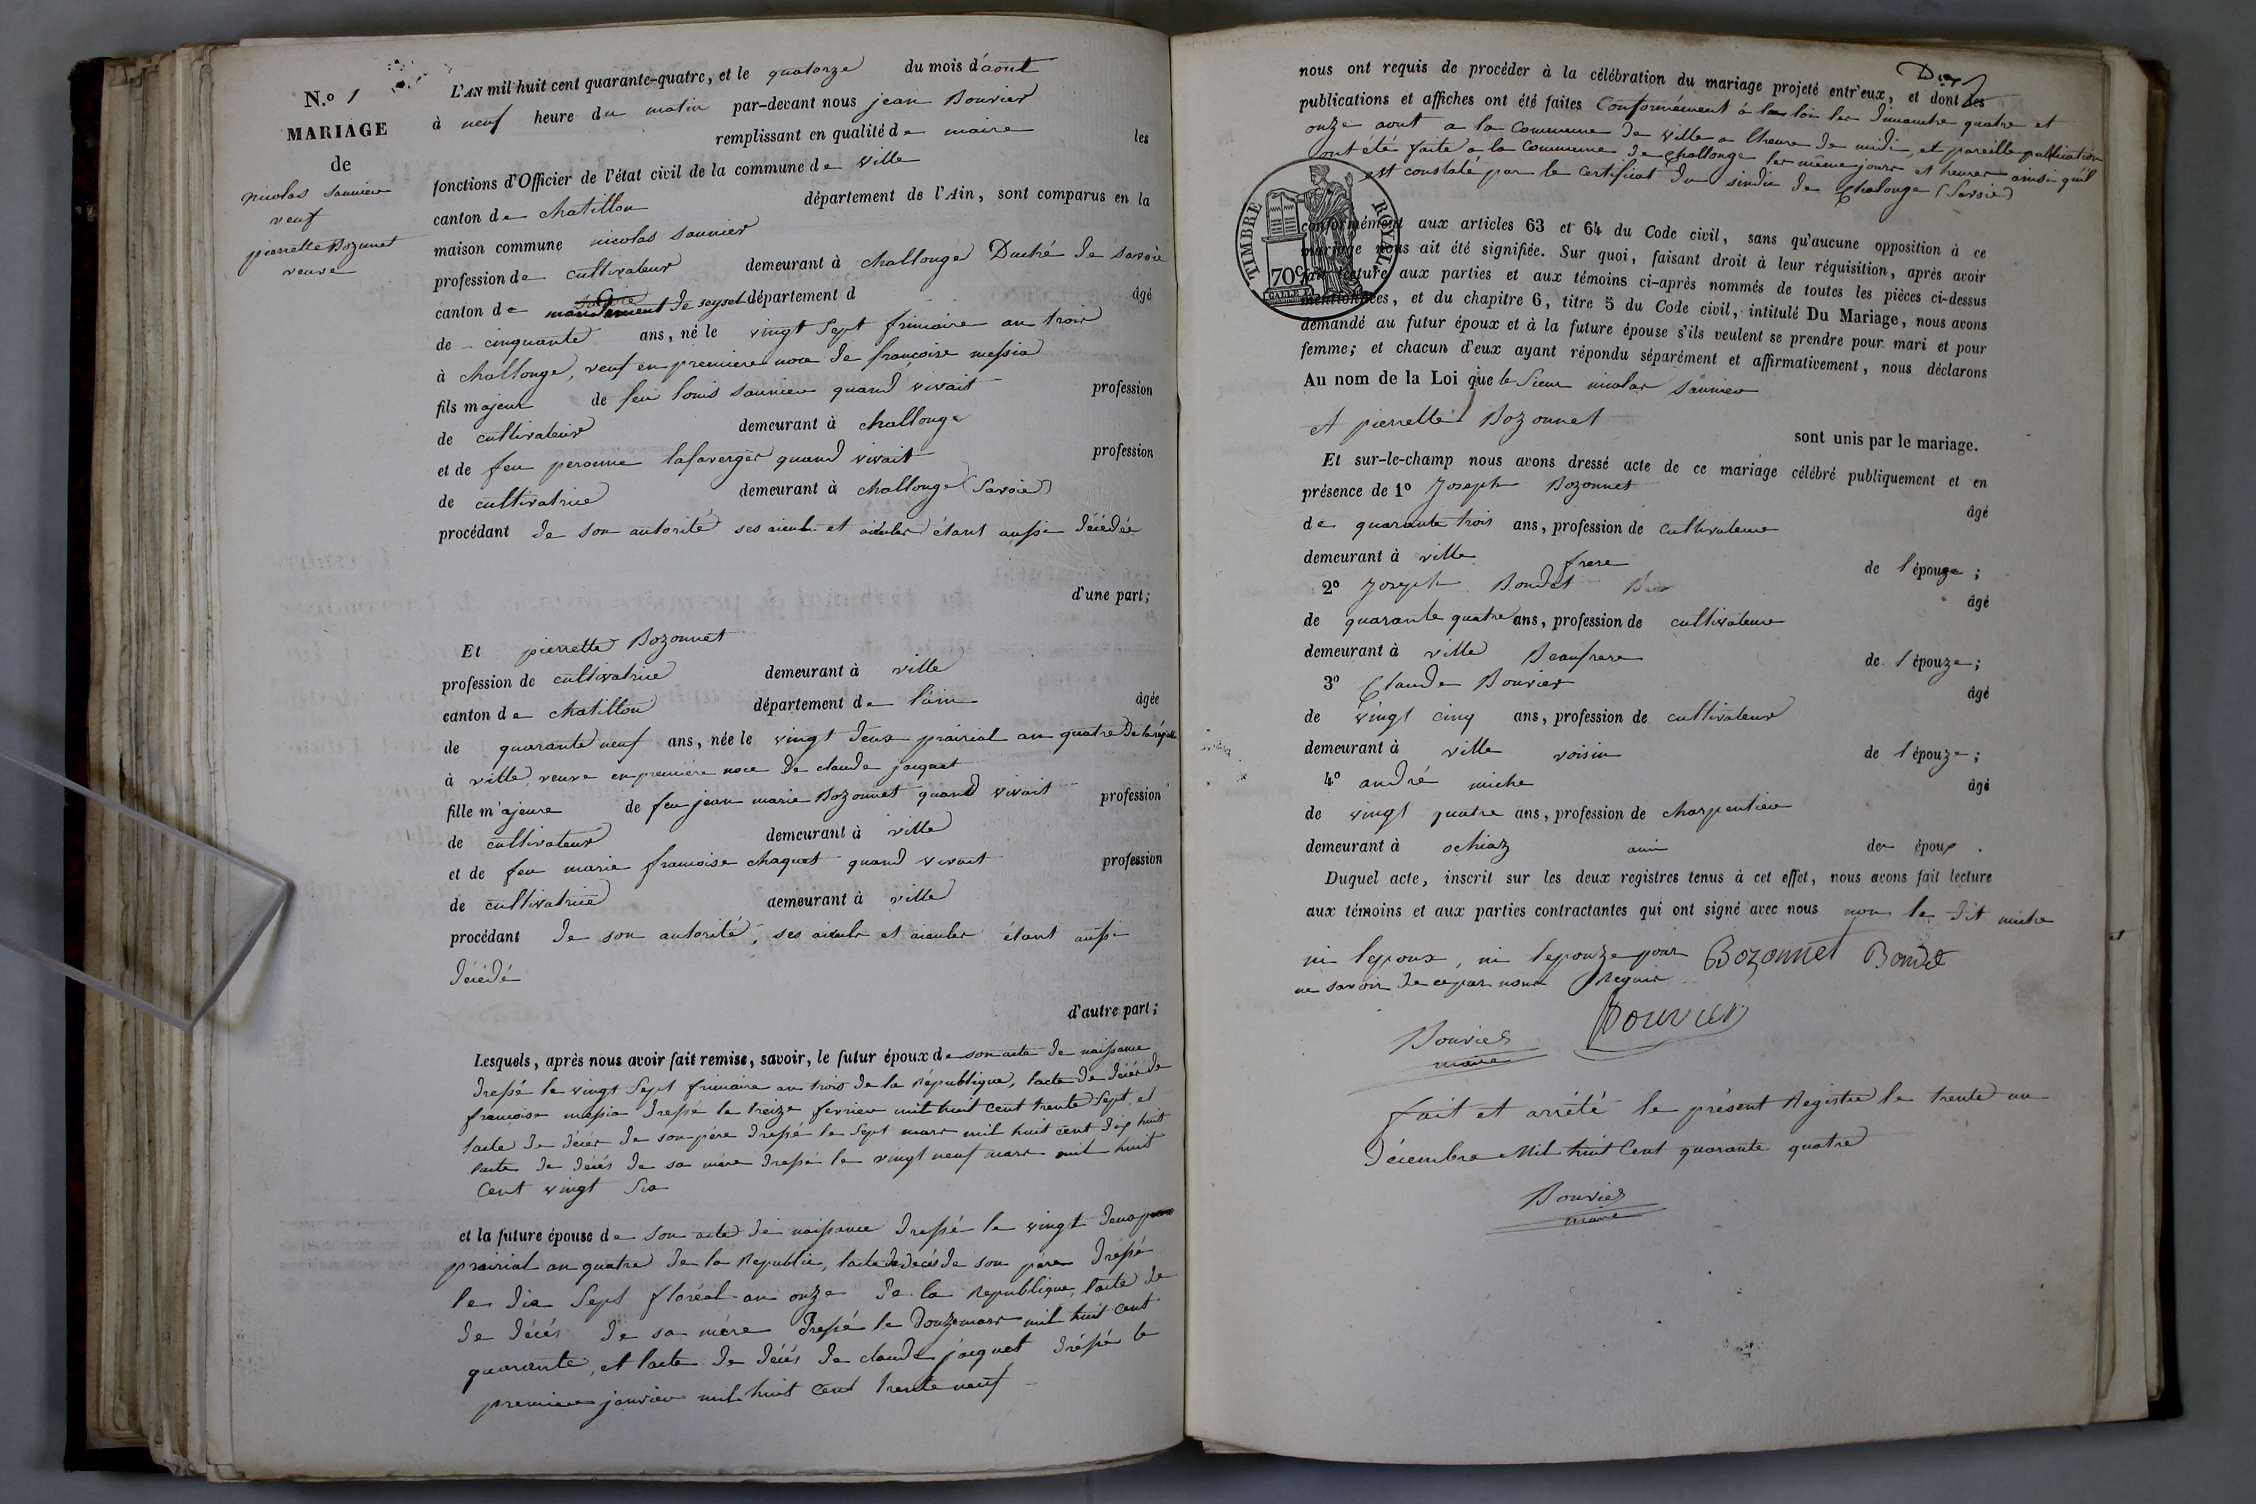 N.o 1
MARIAGE
de
nicolas saunier
veuf
pierrette Bozonnet
veuve
L'AN mil huit cent quarante-quatre, et le quatorze du mois d'aout
à neuf heure du matin par-devant nous jean Bouvier
remplissant en qualité de maire les
fonctions d'Officier de l'état civil de la commune de ville
canton de chatillon département de l'Ain, sont comparus en la
maison commune nicolas saunier
profession de cultivateur demeurant à challonge Duché de savoie
canton de mandement de seyssel département d âgé
de cinquante ans, né le vingt sept frimaire an trois
à challonge, veuf en premiere noce de françoise messia
fils majeur de feu louis saunier quand vivait profession
de cultivateur demeurant à challonge
et de feu peronne lafaverger quand vivait profession
de cultivatrice demeurant à challonge (Savoie)
procédant de son autorité ses aieul et aieules étant aussi décédée
d'une part;
Et pierrette Bozonnet
profession de cultivatrice demeurant à ville
canton de chatillon département de l'ain âgée
de quarante neuf ans, née le vingt deux prairial an quatre de la
à ville, veuve en premiére noce de claude jacquet
fille majeure de feu jean marie Bozonnet quand vivait profession
de cultivateur demeurant à ville
et de feu marie francoise chaquet quand vivait profession
de cultivatrice demeurant à ville
procédant de son autorité, ses aieuls et aieules étant aussi
décédé
d'autre part;
Lesquels, après nous avoir fait remise, savoir, le futur époux de son acte de naissance
dressé le vingt sept frimaire an trois de la République, lacte de décès de
françoise messia dressé le treize fevrier mil huit cent trente sept, et
lacte de décès de son père dressé le sept mars mil huit cent dix huit
lacte de décès de sa mère dressé le vingt neuf mars mil huit
cent vingt six
et la future épouse de son acte de naissance dressé le vingt deux
prairial an quatre de la Republic, lacte de décés de son père dressé
le dix sept floréal an onze de la Republique, lacte de
de décés de sa mère dressé le douze mars mil huit cent
quarante, et lacte de décés de claude jacquet dréssé le
premier janvier mil huit cent trente neuf
nous ont requis de procéder à la célébration du mariage projeté entr'eux, et dont les
publications et affiches ont été faites Conformément à la loi les dimanche quatre et
onze aout a la Commune de ville a lheure de midi, et pareille publication
ont été faite a la Commune de challonge les même jours et heures ainsi quil
est constaté par le certificat du sindic de Chalonge (Savoie)
TIMBRE ROYAL
70c
conformément aux articles 63 et 64 du Code civil, sans qu'aucune opposition à ce
mariage nous ait été signifiée. Sur quoi, faisant droit à leur réquisition, après avoir
fait lecture aux parties et aux témoins ci-après nommés de toutes les pièces ci-dessus
mentionnées, et du chapitre 6, titre 5 du Code civil, intitulé Du Mariage, nous avons
demandé au futur époux et à la future épouse s'ils veulent se prendre pour mari et pour
femme; et chacun d'eux ayant répondu séparément et affirmativement, nous déclarons
Au nom de la Loi que le Sieur nicolas saunier
et pierrette Bozonnet
sont unis par le mariage.
Et sur-le-champ nous avons dressé acte de ce mariage célébré publiquement et en
présence de 1o Joseph Bozonnet âgé
de quarante trois ans, profession de cultivateur
demeurant à ville frere de l'épouze;
2o Joseph Bondet âgé
de quarante quatre ans, profession de cultivateur
demeurant à ville Beaufrere de l'épouze;
3o Claude Bouvier âgé
de vingt cinq ans, profession de cultivateur
demeurant à ville voisin de l'épouze;
4o andré miche âgé
de vingt quatre ans, profession de charpentier
demeurant à ochiaz ami de époux.
Duquel acte, inscrit sur les deux registres tenus à cet effet, nous avons fait lecture
aux témoins et aux parties contractantes qui ont signé avec nous non le dit miche
ni lepoux, ni lepouze pour Bozonnet Bondet
ne savoir de ce par nous Requis
Bouvier Bouvier
maire
fait et arrété le présent Registre le trente un
décembre Mil huit Cent quarante quatre
Bouvier
maire